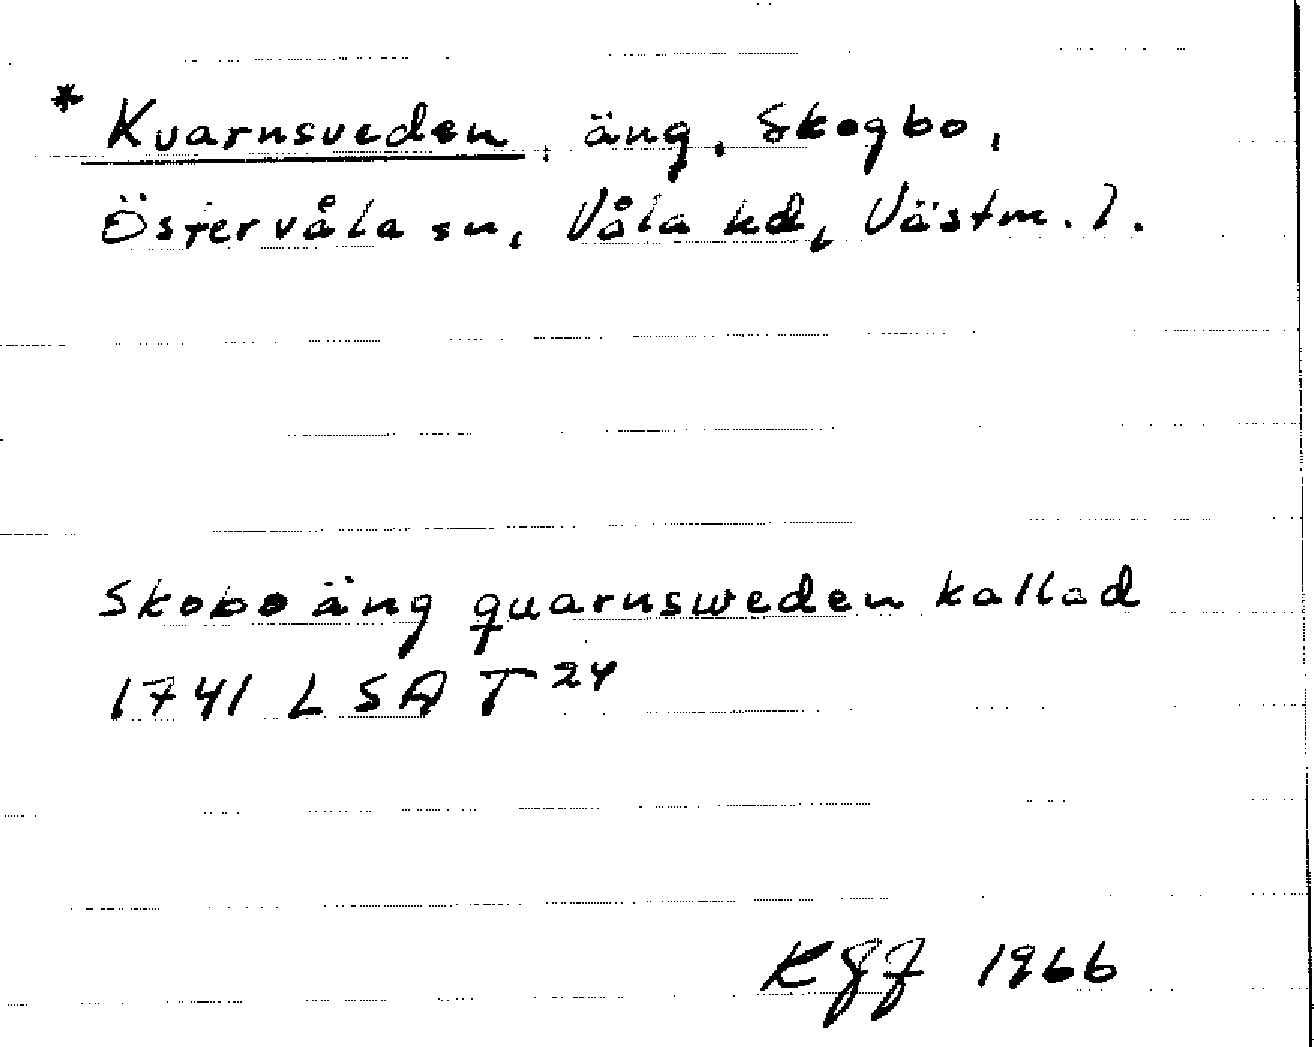 * Kvarnsveden, äng, Skogbo,
Östervåla sn, Våla hd, Västm. l.
Skobo äng quarnsweden kallad
1741 LSA T 24
1966